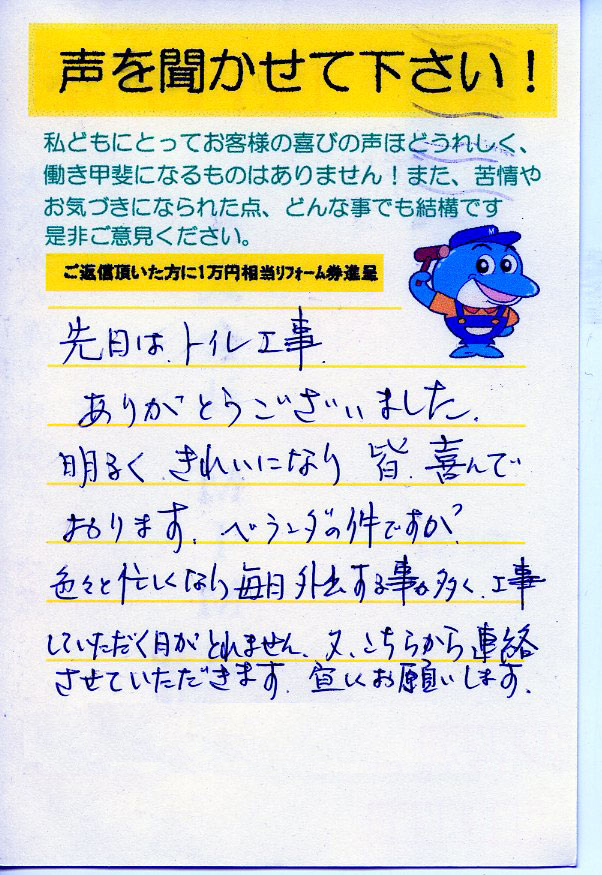 声を聞かせて下さい！
私どもにとってお客様の喜びの声ほどうれしく、
働き甲斐になるものはありません！また、苦情や
お気づきになられた点、どんな事でも結構です
是非ご意見ください。
ご返信頂いた方に1万円相当リフォーム券進呈
M
先日は、トイレ工事
ありがとうございました。
明るく きれいになり 皆、喜んで
おります。ベランダの件ですが、
色々と忙しくなり毎日外出する事が多く、工事
していただく日がとれません。又、こちらから連絡
させていただきます。宜しくお願いします。